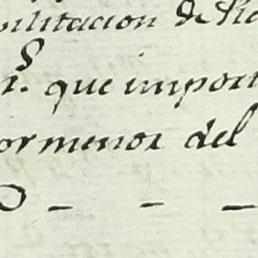 ilitacion de
rs. que impor
ormenor del